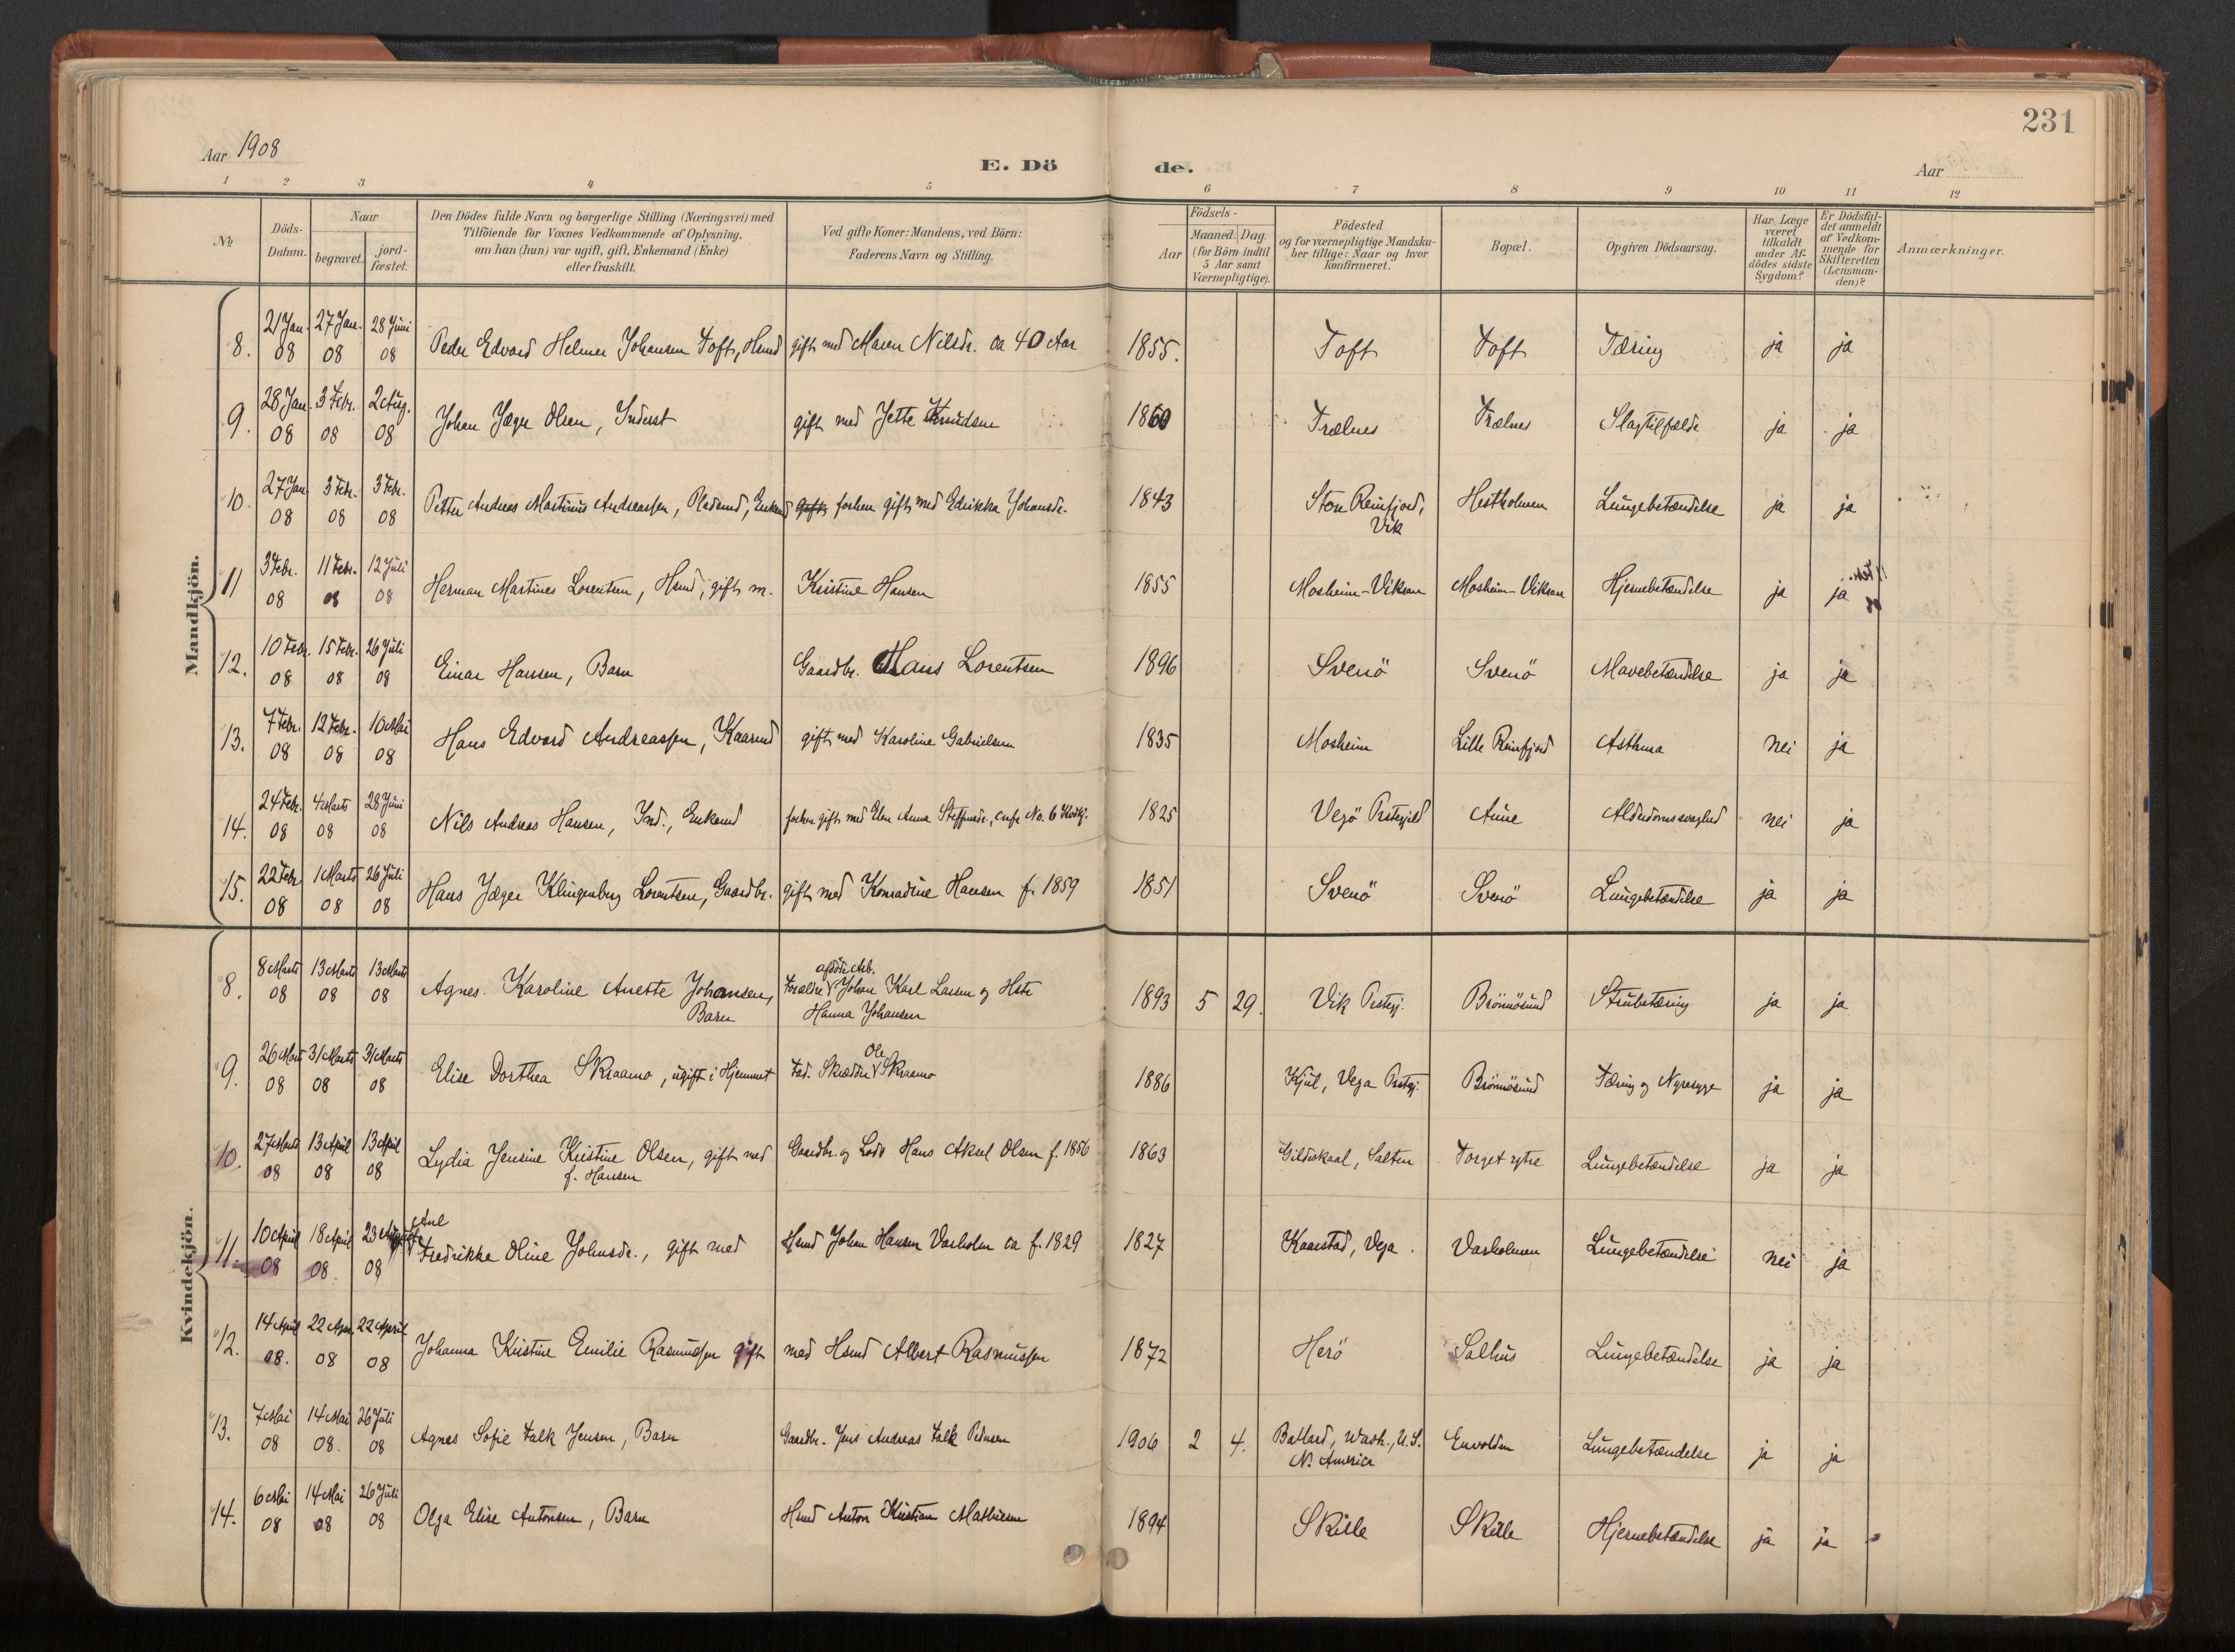 231
Aar 1908
E. Dö
de.
Aar
1 2 3 4 5 6 7 8 9 10 11 12
№
Döds-Datum.
Naar
begravet.
jord-fæstet.
Den Dödes fulde Navn og borgerlige Stilling (Næringsvei) med
Tilföiende for Voxnes Vedkommende af Oplysning,
om han (hun) var ugift, gift, Enkemand (Enke)
eller fraskilt.
Ved gifte Koner: Mandens, ved Börn:
Faderens Navn og Stilling.
Födsels-
Aar
Maaned. Dag.
(for Börn indtil
5 Aar samt
Værnepligtige).
Födested
og for værnepligtige Mandska-
ber tillige: Naar og hvor
konfirmeret.
Bopæl.
Opgiven Dödsaarsag.
Har Læge
været
tilkaldt
under Af-
dödes sidste
Sygdom?
Er Dödsfal-
det anmeldt
af Vedkom-
mende for
Skifteretten
(Lensman-
den)?
Anmærkninger.
Mandkjön.
8. 21 Jan. 08 27 Jan. 08 28 Juni 08 Peder Edvard Helmer Johansen Toft, Hsmd gift med Maren Nilsdr. ca 40 Aar 1855. Toft Toft Tæring ja ja
9. 28 Jan. 08 3 Febr. 08 2 Aug. 08 Johan Jæger Olsen, Inderst gift med Jette Knudsen 1860 Trælnes Trælnes Slagtilfælde ja ja
10. 27 Jan. 08 3 Febr. 08 3 Febr. 08 Petter Andreas Martinus Andreassen, Pladsmd, Enkemd forhen gift med Edrikka Johansdr. 1843 Store Reinfjord, Vik Hestholmen Lungebetændelse ja ja
11 3 Febr. 08 11 Febr. 08 12 Juli 08 Herman Martines Lorentsen, Hsmd, gift m. Kristine Hansen 1855 Mosheim-Viksan Mosheim-Viksan Hjernebetændelse ja ja
12. 10 Febr. 08 15 Febr. 08 26 Juli 08 Einar Hansen, Barn Gaardbr. Hans Lorentsen 1896 Svenö Svenö Mavebetændelse ja ja
13. 7 Febr. 08 12 Febr. 08 10 Mai 08 Hans Edvard Andreassen, Kaarmd gift med Karoline Gabrielsen 1835 Mosheim Lille Reinfjord Asthma nei ja
14. 24 Febr. 08 4 Marts 08 28 Juni 08 Nils Andreas Hansen, Ind., Enkemd forhen gift med Elen Anna Steffensdr., cnfr No. 6 Kvdkj. 1825 Vegö Prstegjeld Aune Alderdomssvaghed nei ja
15. 22 Febr. 08 1 Marts 08 26 Juli 08 Hans Jæger Klingenberg Lorentsen, Gaardbr. gift med Konradine Hansen f. 1859 1851 Svenö Svenö Lungebetændelse ja ja
Kvindekjön.
8. 8 Marts 08 13 Marts 08 13 Marts 08 Agnes Karoline Anette Johansen, Barn Forældre afdöde Arb. Johan Karl Larsen og Hstr Hanna Johansen 1893 5 29. Vik Prstegj. Brönnösund Strubetæring ja ja
9. 26 Marts 08 31 Marts 08 31 Marts 08 Elise Dorthea Skraamo, ugift i Hjemmet Fad. Skrædder Ole Skraamo 1886 Kjul, Vega Prstgj. Brönnösund Tæring og Nyresyge ja ja
10. 27 Marts 08 13 April 08 13 April 08 Lydia Jensine Kristine Olsen, gift med f. Hansen Gaardbr. og Lods Hans Aksel Olsen f. 1856 1863 Gildeskaal, Salten Torget ytre Lungebetændelse ja ja
11. 10 April 08 18 April 08 23 August 08 Ane Fredrikke Oline Johnsdr., gift med Hsmd Johan Hansen Varholm ca f. 1829 1827 Kaarstad, Vega. Varholmen Lungebetændelse nei ja
12. 14 April 08. 22 Apr. 08 22 April 08 Johanna Kristine Emilie Rasmussen gift med Hsmd Albert Rasmussen 1872 Herö Salhus Lungebetændelse ja ja
13. 7 Mai 08 14 Mai 08. 26 Juli 08 Agnes Sofie Falk Jensen, Barn Gaardbr. Jens Andreas Falk Pedersen 1906 2 4. Ballard, Wash., U.S. N. America Envolden Lungebetændelse ja ja
14. 6 Mai 08 14 Mai 08 26 Juli 08 Olga Elise Antonsen, Barn Hsmd Anton Kristian Mathisen 1894 Skille Skille Hjernebetændelse ja ja